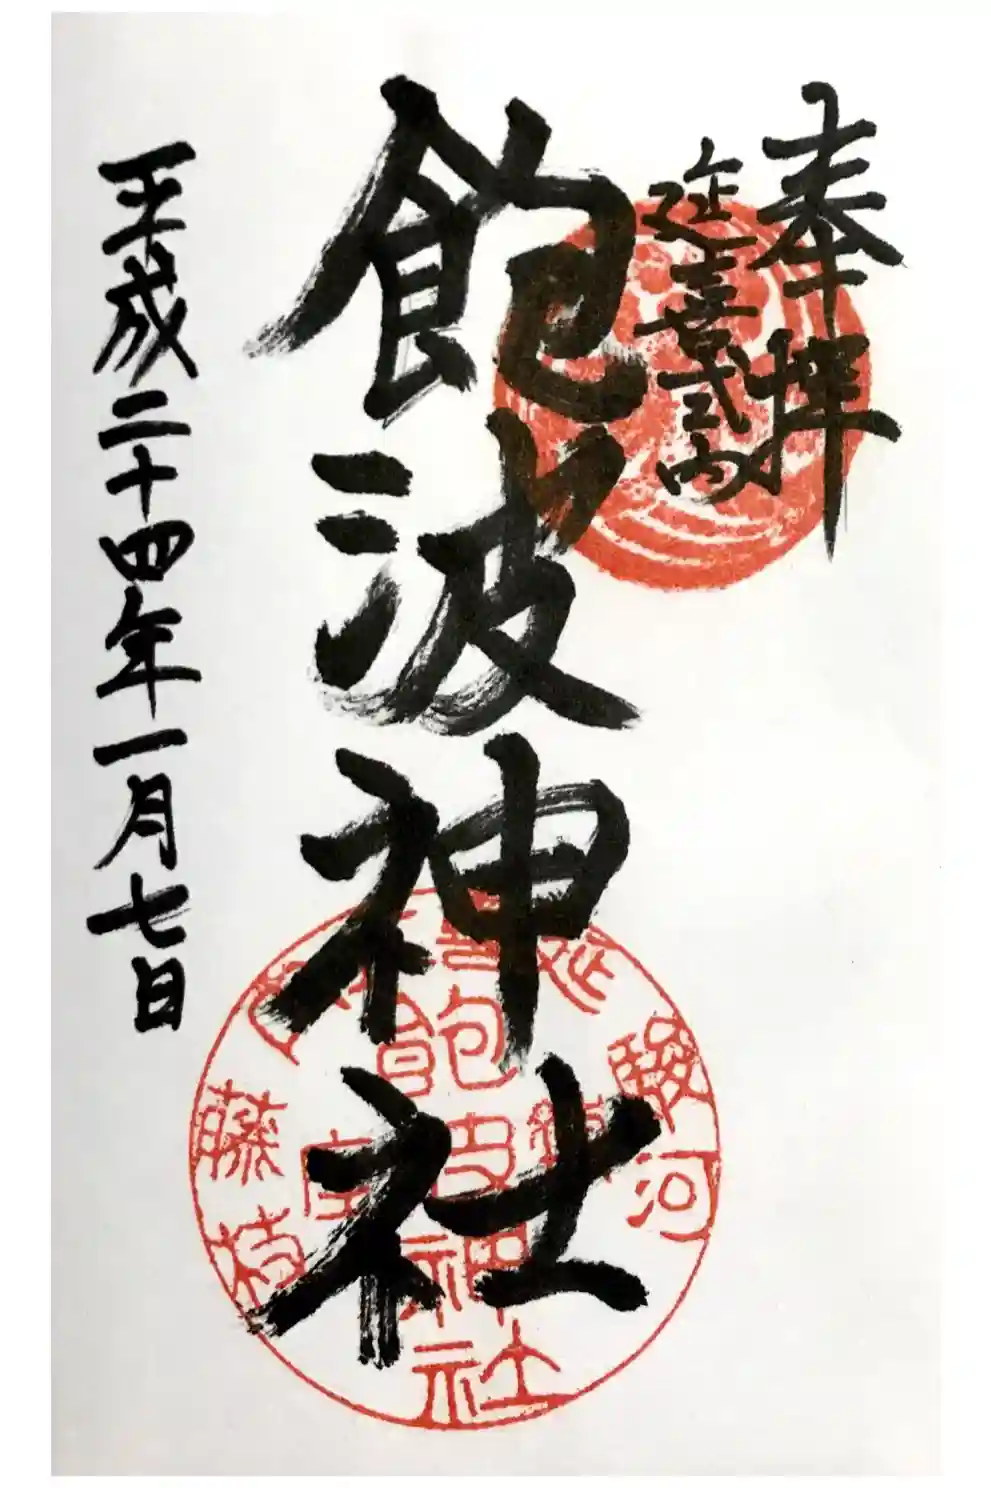 奉拝
延喜式内
飽波神社
平成二十四年一月七日
駿河
延喜
藤枝
飽波神社